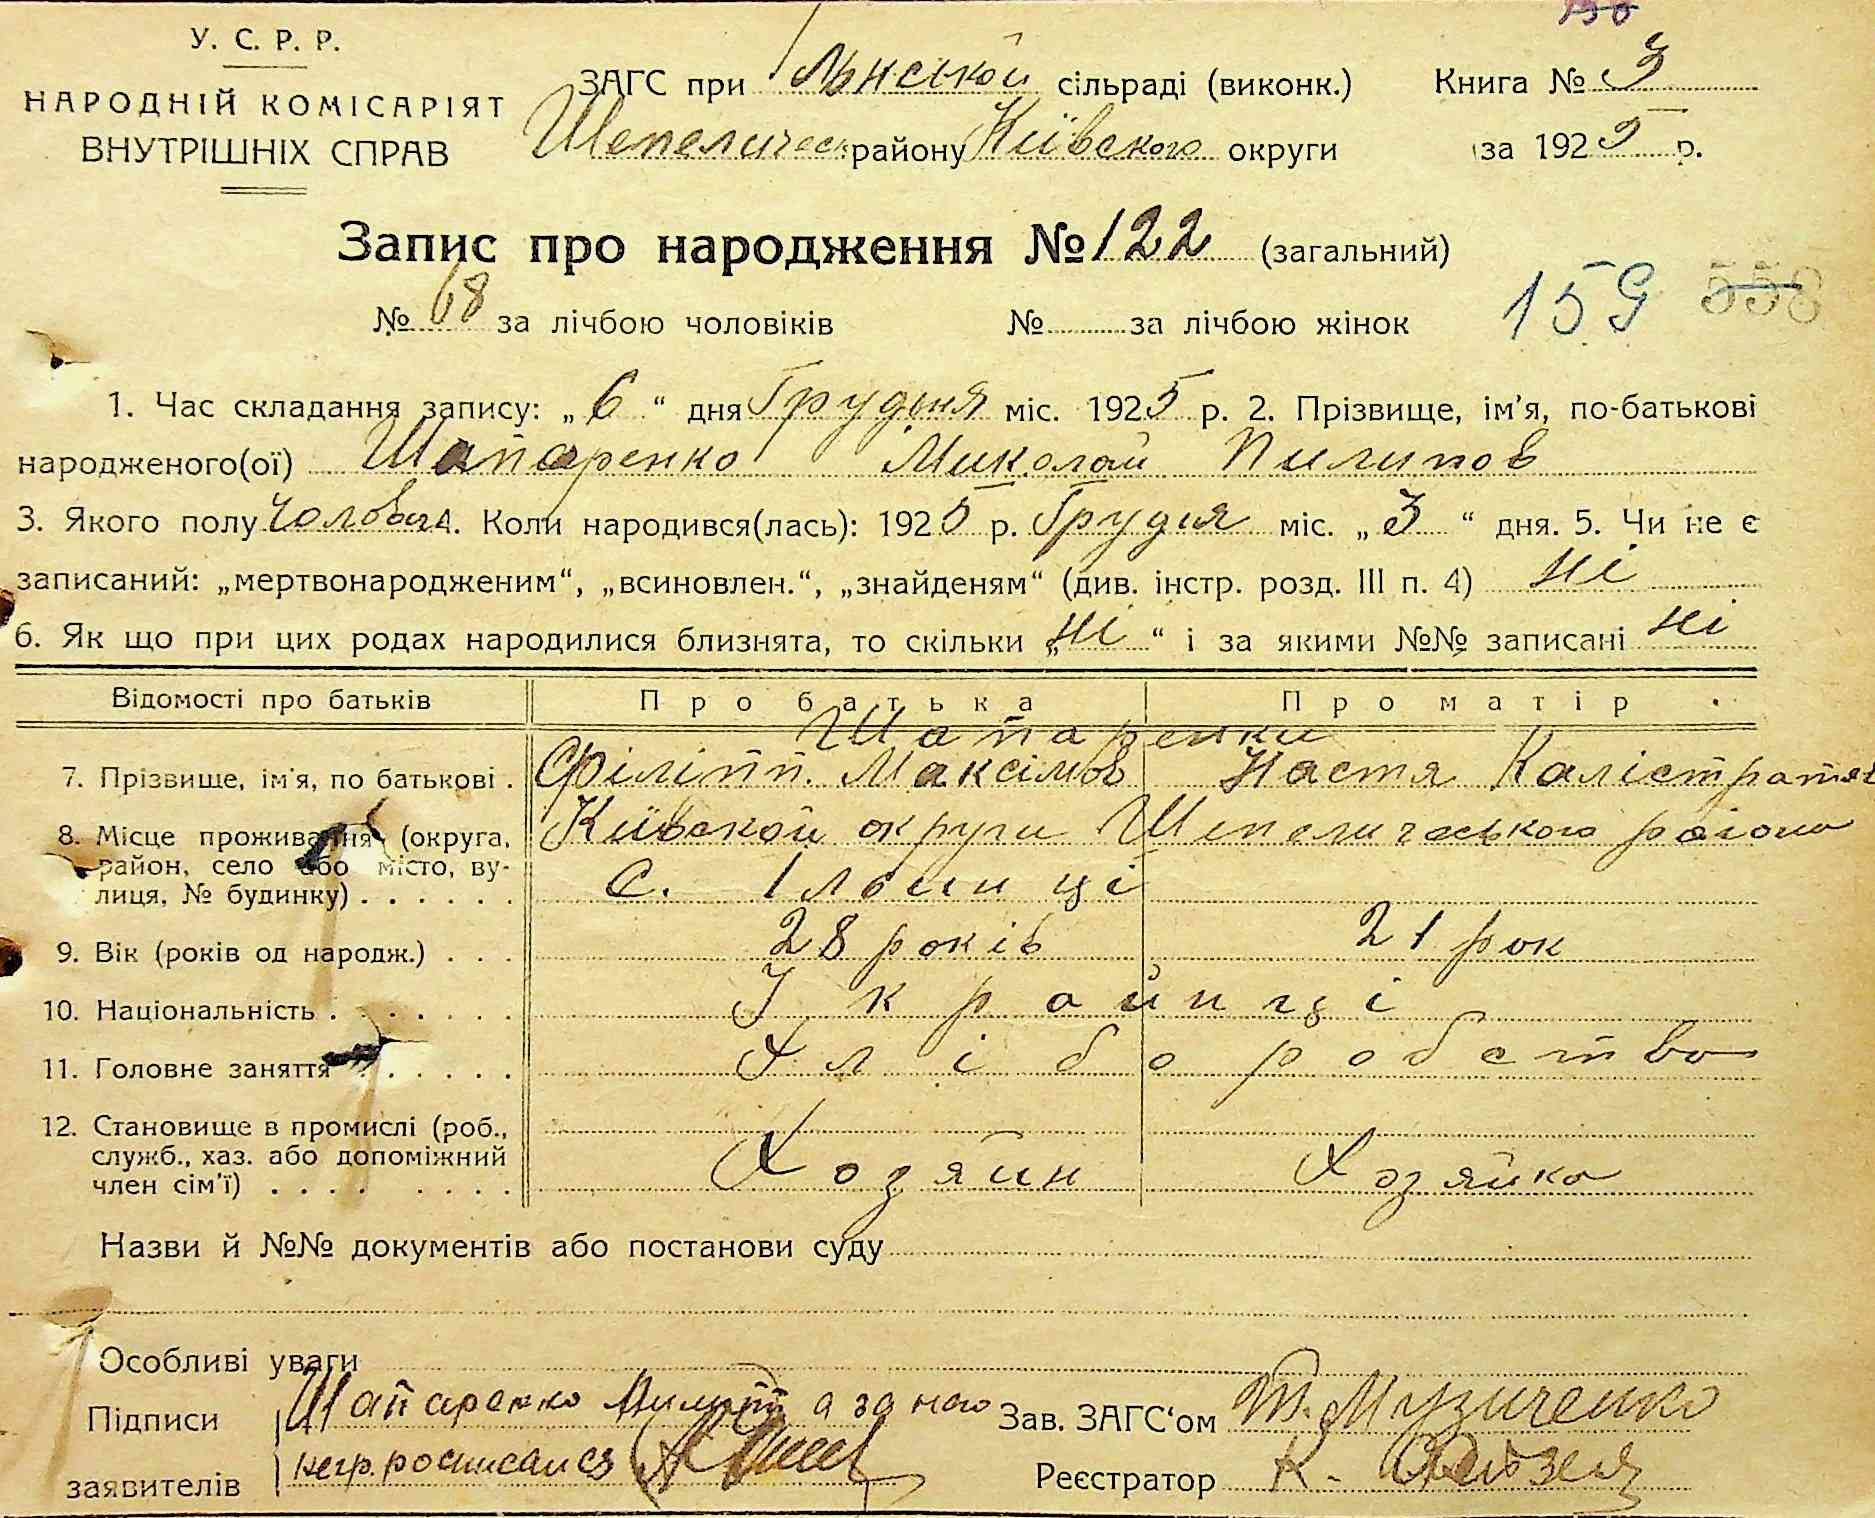 У. С. Р. Р.
НАРОДНІЙ КОМІСАРІЯТ
ВНУТРІШНІХ СПРАВ
ЗАГС при Ільнської сільраді (виконк.)
Шепелическ. району Київского округи
Книга № 3
за 1925 р.
Запис про народження № 122 (загальний)
№ 68 за лічбою чоловіків № за лічбою жінок
159 558
1. Час складання запису: „6“ дня Грудня міс. 1925 р. 2. Прізвище, ім’я, по-батькові
народженого(ої) Шапаренко Миколай Пилипов
3. Якого полу Чолов 4. Коли народився(лась): 1925 р. Грудня міс. „3“ дня. 5. Чи не є
записаний: „мертвонародженим“, „всиновлен.“, „знайденям“ (див. інстр. розд. III п. 4) ні
6. Як що при цих родах народилися близнята, то скільки „ні“ і за якими №№ записані ні
Відомості про батьків Про батька Про матір
Шапаренки
7. Прізвище, ім’я, по батькові . Філіпп. Максімов Настя Калістратов
8. Місце проживання (округа, Київской округи Шепелическького району
район, село або місто, ву- с. Ільинці
лиця, № будинку) . . . . . .
9. Вік (років од народж.) . . . 28 років 21 рок
10. Національність . . . . . . . Украйнці
11. Головне заняття . . . . . . Хліборобство
12. Становище в промислі (роб.,
служб., хаз. або допоміжний Хозяин Хозяйка
член сім’ї) . . . . . . . .
Назви й №№ документів або постанови суду
Особливі уваги
Підписи Шапаренко Пилипп а за него
Зав. ЗАГС‘ом Музиченко
заявителів негр. росписался
Реєстратор К.